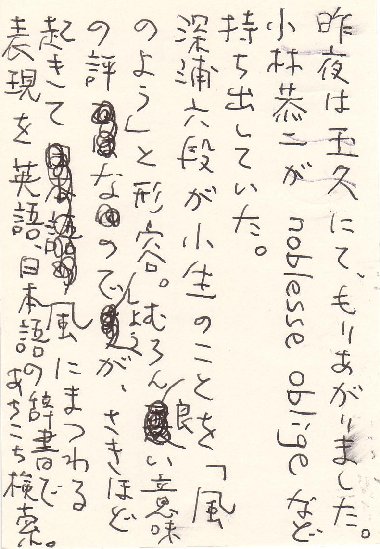 昨夜は玉久にて、もりあがりました。
小林恭二が noblesse oblige など
持ち出していた。
深浦六段が小生のことを「風
のよう」と形容。むろん良い意味
の評なのでしょうが、さきほど
起きて風にまつわる
表現を英語、日本語の辞書であちこち検索。